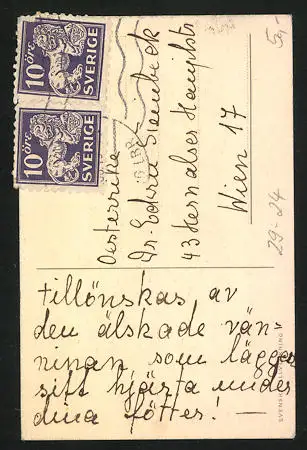 10 öre
SVERIGE
10 öre
SVERIGE
5,-
Oesterrike
43 Hernalser Hauptstr
Wien 17
29-24
tillönskas av
den älskade vän-
ninan, som lägger
sitt hjärta under
dina fötter! —